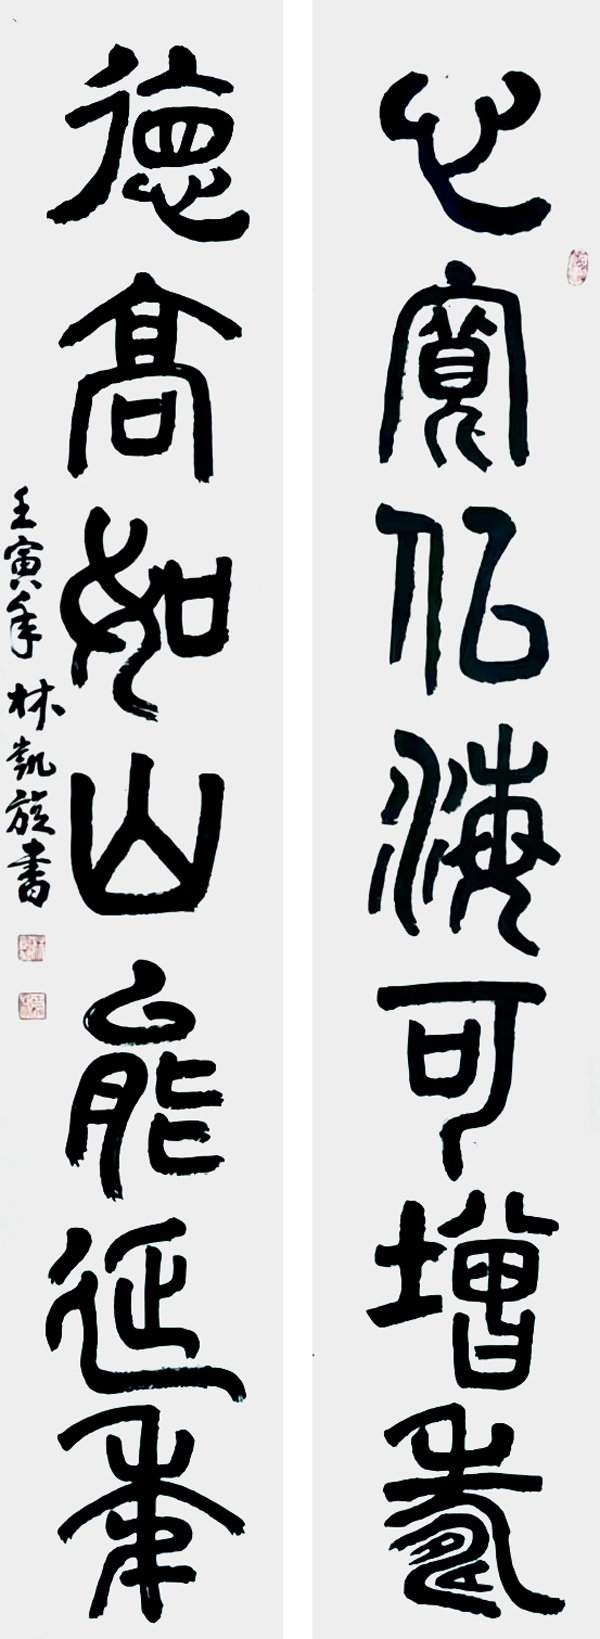 心寬似海可增壽
德高如山能延年
壬寅年 林凱旋書